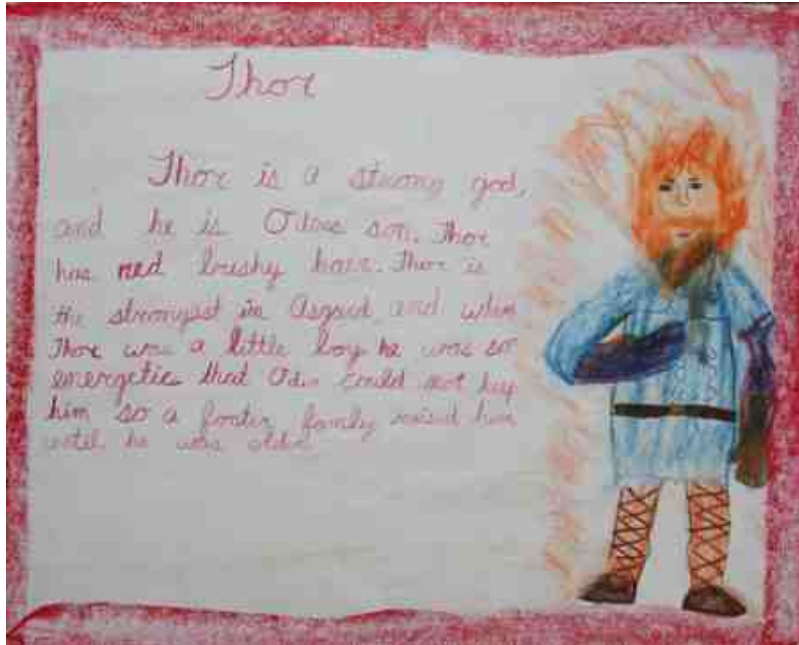 Thor
Thor is a strong god,
and he is Odens son. Thor
has red brushy hair. Thor is
the strongest in Asgard and when
Thor was a little boy he was so
energetic that Odin could not keep
him so a foster family raised him
until he was older